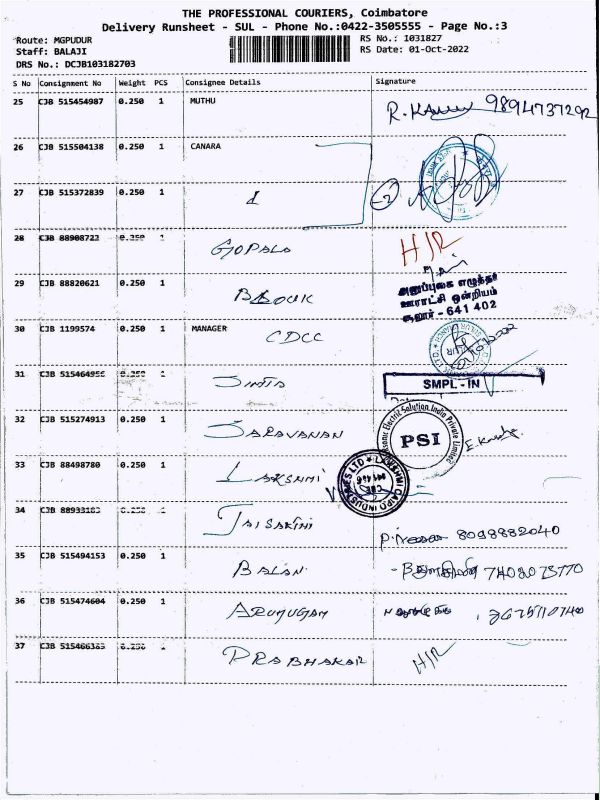 THE PROFESSIONAL COURIERS, Coimbatore
Delivery Runsheet - SUL - Phone No.:0422-3505555 - Page No.:3
Route: MGPUDUR RS No.: 1031827
Staff: BALAJI RS Date: 01-Oct-2022
DRS No.: DCJB103182703
S No Consignment No Weight PCS Consignee Details Signature
25 CJB 515454987 0.250 1 MUTHU 9894737292
26 CJB 515504138 0.250 1 CANARA
27 CJB 515372839 0.250 1
28 CJB 88908722 0.250 1 GOPALA H/R
29 CJB 88820621 0.250 1
அனுப்புகை எழுத்தர்
ஊராட்சி ஒன்றியம்
சூலூர் - 641 402
30 CJB 1199574 0.250 1 MANAGER
CDCC
31 CJB 515464956 0.250 1
SMPL - IN
32 CJB 515274913 0.250 1 SARAVANAN PSI
33 CJB 88498780 0.250 1 LAKSHMI
34 CJB 88933183 0.250 1 JAISAKTHI 8098882040
35 CJB 515494153 0.250 1 BALAN
36 CJB 515474604 0.250 1 ARUMUGAM
37 CJB 515466383 0.250 1 PRABHAKAR H/R